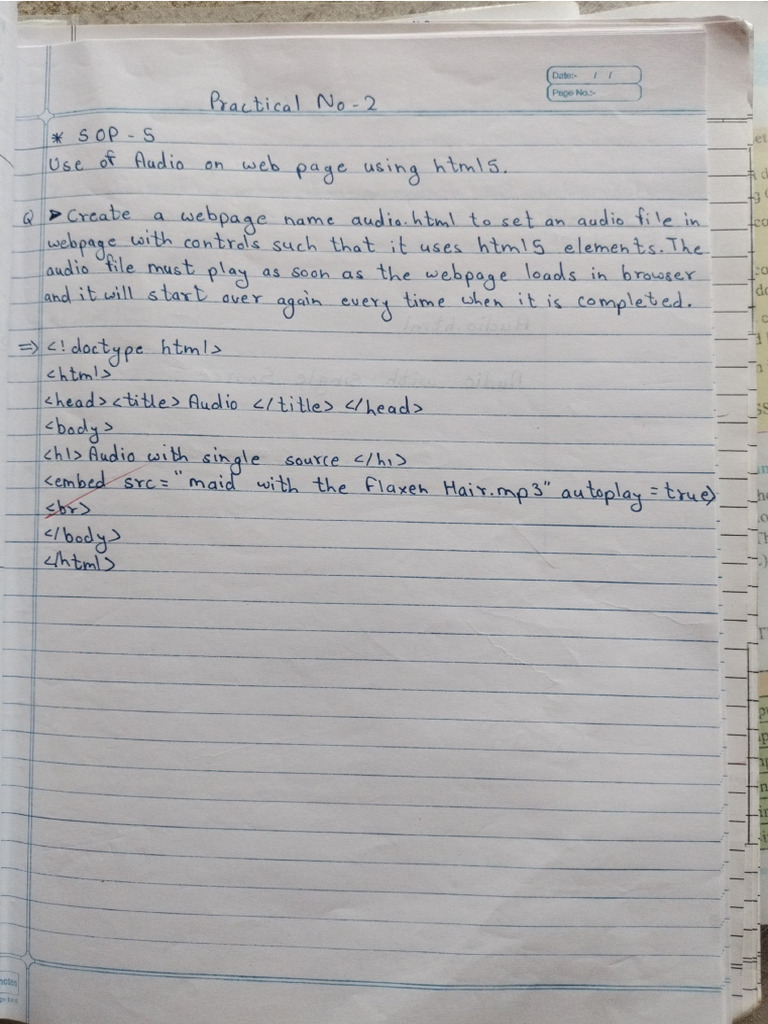 Date:- / /
Page No.:-
Practical No-2
* SOP-5
Use of Audio on web page using html5.
Q ➤ Create a webpage name audio.html to set an audio file in
webpage with controls such that it uses html5 elements. The
audio file must play as soon as the webpage loads in browser
and it will start over again every time when it is completed.
⇒ <!doctype html>
<html>
<head><title> Audio </title> </head>
<body>
<h1> Audio with single source </h1>
<embed src="maid with the Flaxen Hair.mp3" autoplay=true>
<br>
</body>
</html>